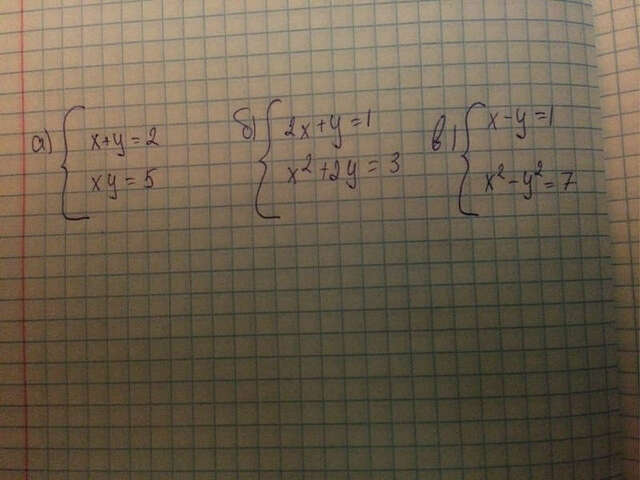 а) x+y=2
xy=5
б) 2x+y=1
x²+2y=3
в) x-y=1
x²-y²=7